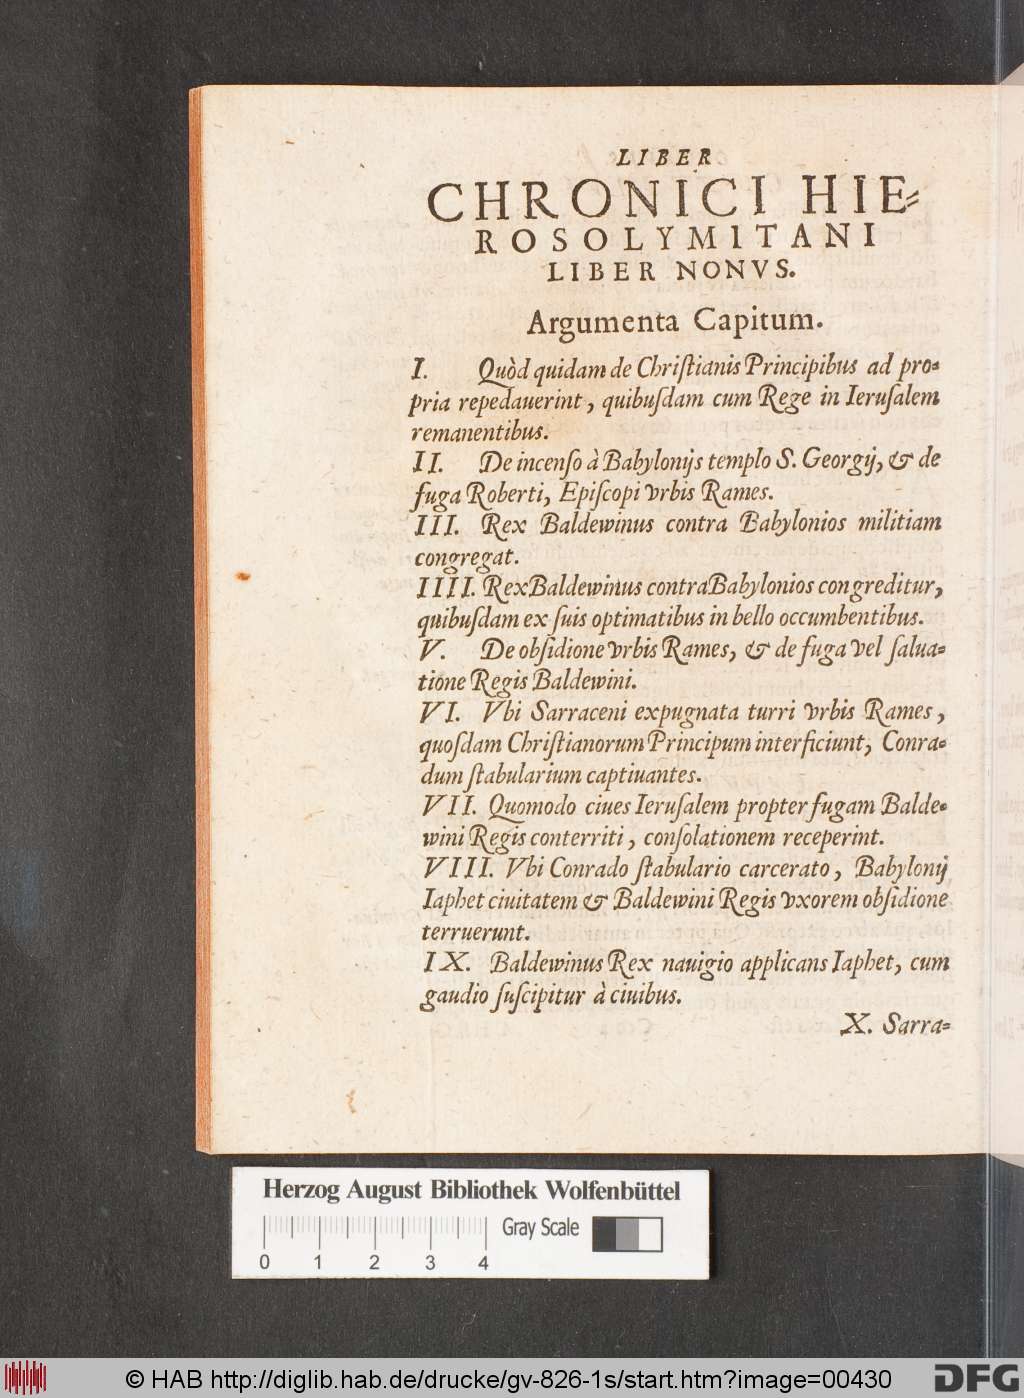 LIBER
CHRONICI HIE=
ROSOLYMITANI
LIBER NONVS.
Argumenta Capitum.
I. Quòd quidam de Chriſtianis Principibus ad pro=
pria repedauerint, quibuſdam cum Rege in Ieruſalem
remanentibus.
II. De incenſo à Babylonijs templo S. Georgij, & de
fuga Roberti, Epiſcopi vrbis Rames.
III. Rex Baldewinus contra Babylonios militiam
congregat.
IIII. Rex Baldewinus contra Babylonios congreditur,
quibuſdam ex ſuis optimatibus in bello occumbentibus.
V. De obſidione vrbis Rames, & de fuga vel ſalua=
tione Regis Baldewini.
VI. Vbi Sarraceni expugnata turri vrbis Rames,
quoſdam Chriſtianorum Principum interficiunt, Conra=
dum ſtabularium captiuantes.
VII. Quomodo ciues Ieruſalem propter fugam Balde=
wini Regis conterriti, conſolationem receperint.
VIII. Vbi Conrado ſtabulario carcerato, Babylonij
Iaphet ciuitatem & Baldewini Regis vxorem obſidione
terruerunt.
IX. Baldewinus Rex nauigio applicans Iaphet, cum
gaudio ſuſcipitur à ciuibus.
X. Sarra=
Herzog August Bibliothek Wolfenbüttel
Gray Scale
0 1 2 3 4
© HAB http://diglib.hab.de/drucke/gv-826-1s/start.htm?image=00430
DFG